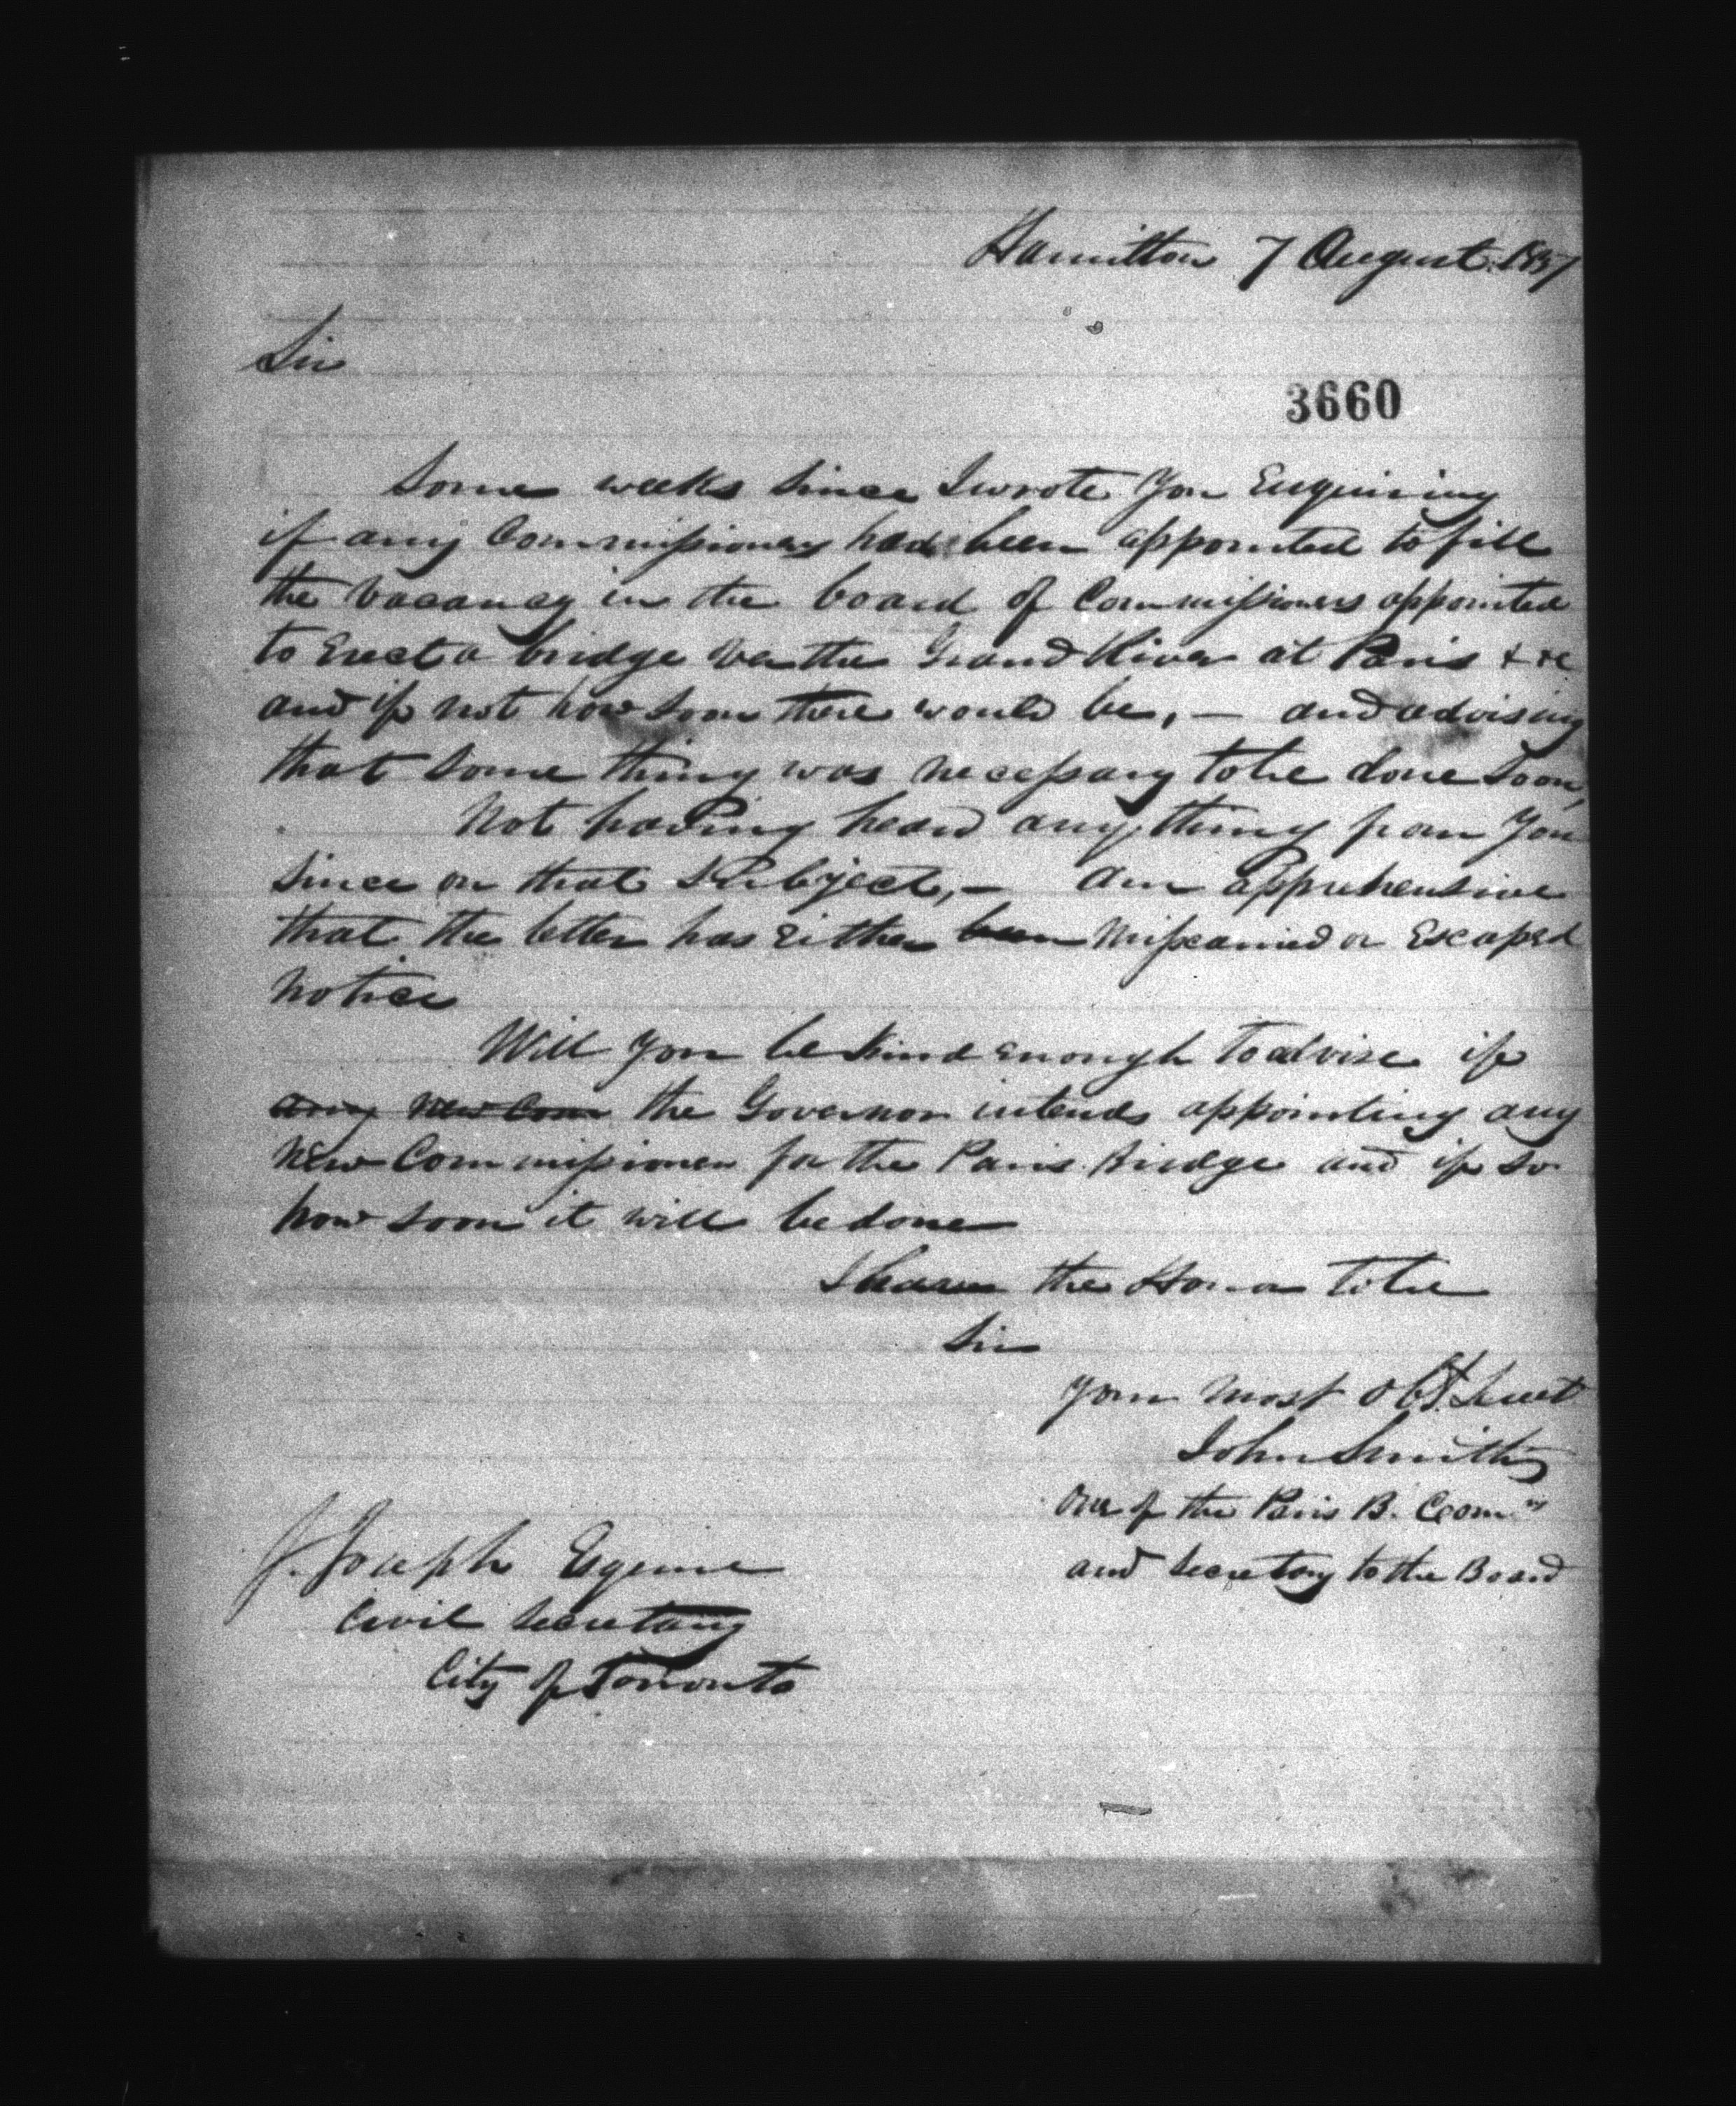 Hamilton 7 August 1837
Sir
3660
Some weeks since I wrote you Enquiring
if any Commissioners had been appointed to fill
the vacancy in the board of Commissioners appointed
to Erect a bridge over the Grand River at Paris &c
and if not how soon there would be, — and advising
that some thing was necessary to be done soon,
Not having heard any thing from you
since on that subject, — am apprehensive
that the letter has either been miscarried or Escaped
notice
Will you be kind enough to advise if
any new Com the Governor intends appointing any
New Commissioner for the Paris Bridge and if so
how soon it will be done
I have the Honor to be
Sir
your most obt. Servt
John Smith
One of the Paris B. Comrs
and Secretary to the Board
J. Joseph Esquire
Civil Secretary
City of Toronto